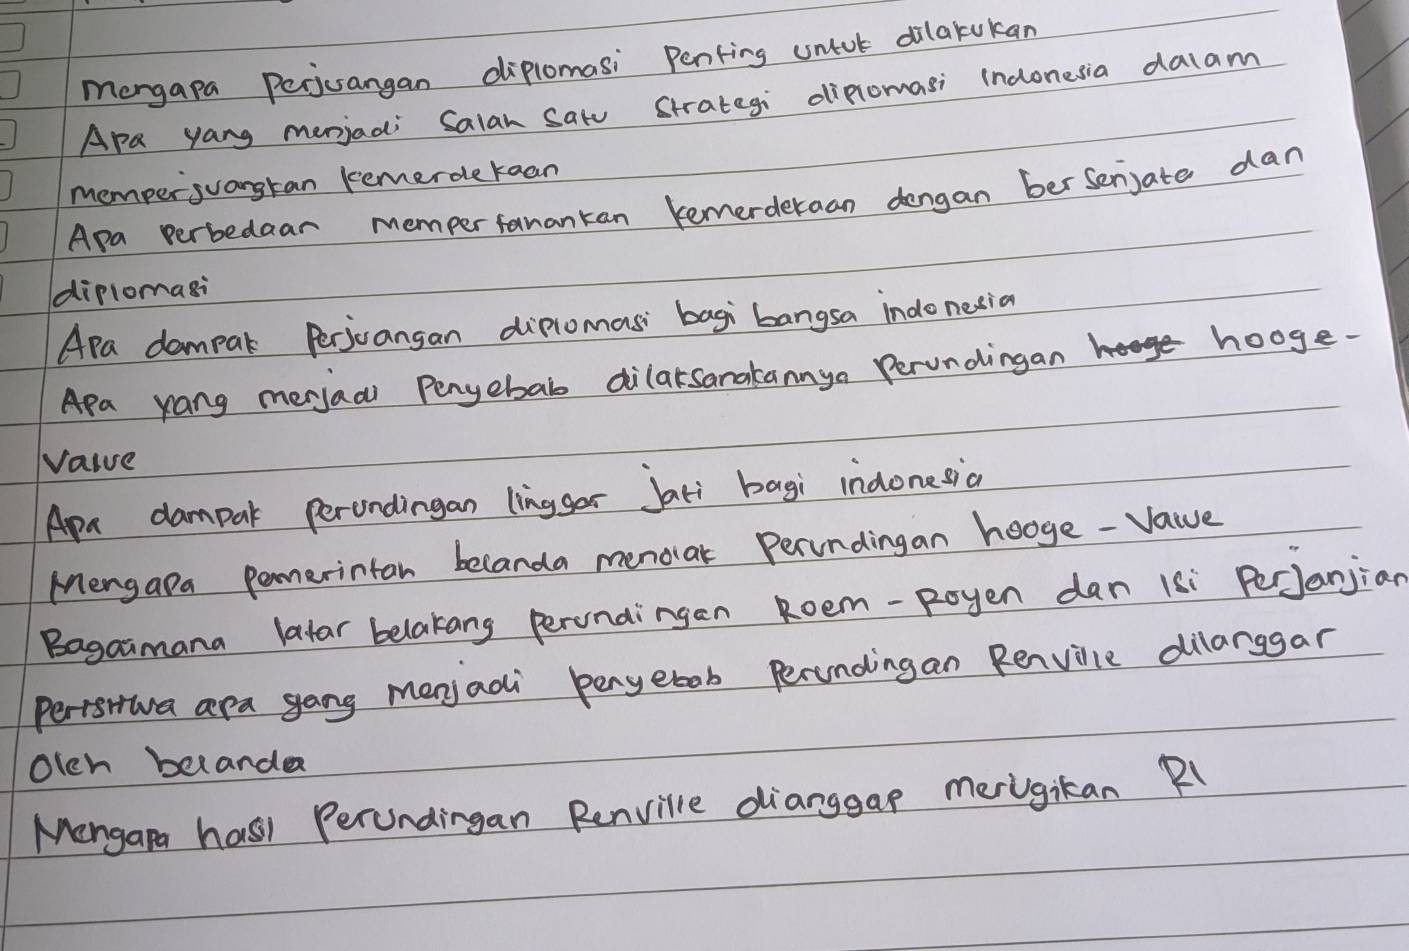 Mengapa Perjuangan diplomasi Penting untuk dilakukan
Apa yang menjadi salah satu strategi diplomasi indonesia dalam
memperjuangkan kemerdekaan
Apa perbedaan mempertahankan kemerdekaan dengan bersenjata dan
diplomasi
Apa dampak Perjuangan diplomasi bagi bangsa indonesia
Apa yang menjadi Penyebab dilaksanakannya Perundingan hooge hooge-
Value
Apa dampak Perundingan linggar jati bagi indonesia
Mengapa Pemerintah belanda menolak Perundingan hooge - Vawe
Bagaimana latar belakang Perundingan Roem - Royen dan isi Perjanjian
Peristiwa apa yang menjadi penyebab Perundingan Renville dilanggar
Oleh belanda
Mengapa hasil Perundingan Renville dianggap merugikan RI